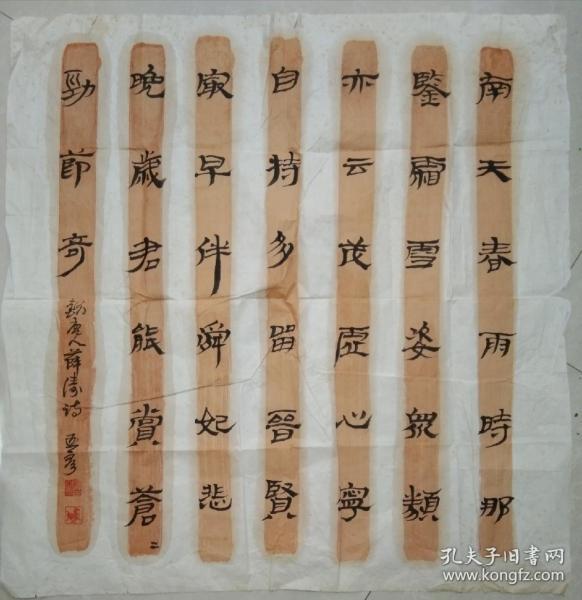 南天春雨時那
鑒霜雪姿眾類
亦云茂虛心寧
自持多留晉賢
㝡早伴舜妃悲
晚歲君能賞蒼〻
勁節奇
錄唐人薛濤詩
孔夫子旧书网
www.kongfz.com